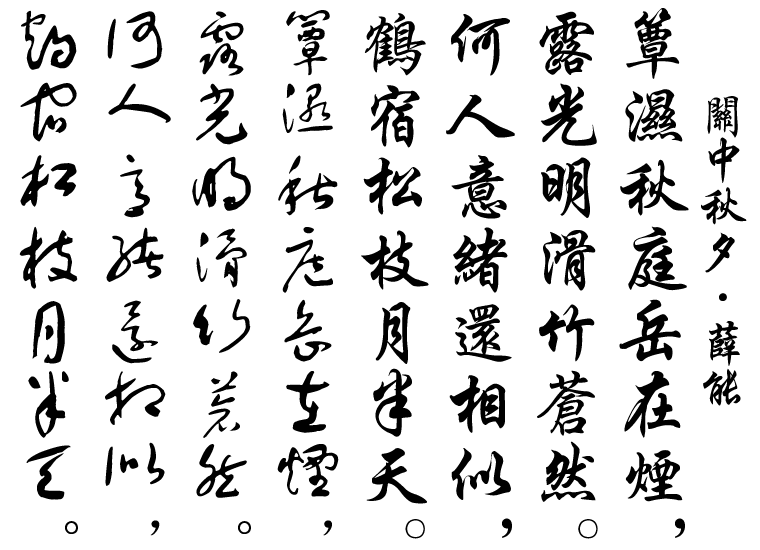 關中秋夕·薛能
簟濕秋庭岳在煙，
露光明滑竹蒼然。
何人意緒還相似，
鶴宿松枝月半天。
簟濕秋庭岳在煙，
露光明滑竹蒼然。
何人意緒還相似，
鶴宿松枝月半天。